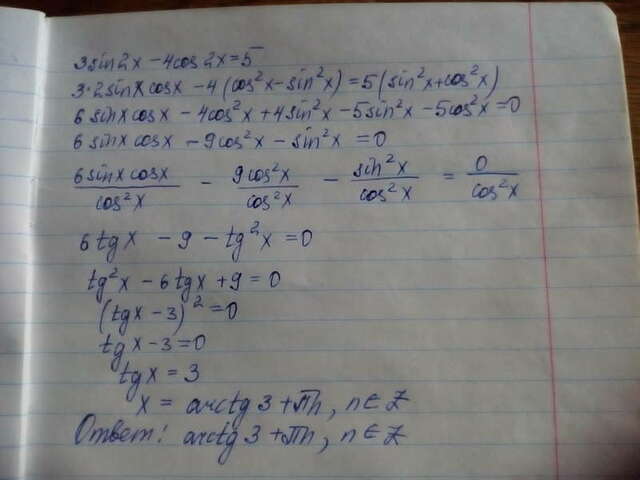 3sin2x - 4cos2x = 5
3·2sinx cosx - 4(cos²x - sin²x) = 5(sin²x + cos²x)
6sinx cosx - 4cos²x + 4sin²x - 5sin²x - 5cos²x = 0
6sinx cosx - 9cos²x - sin²x = 0
6sinx cosx / cos²x - 9cos²x / cos²x - sin²x / cos²x = 0 / cos²x
6tgx - 9 - tg²x = 0
tg²x - 6tgx + 9 = 0
(tgx - 3)² = 0
tgx - 3 = 0
tgx = 3
x = arctg3 + πn, n ∈ Z
Ответ: arctg3 + πn, n ∈ Z